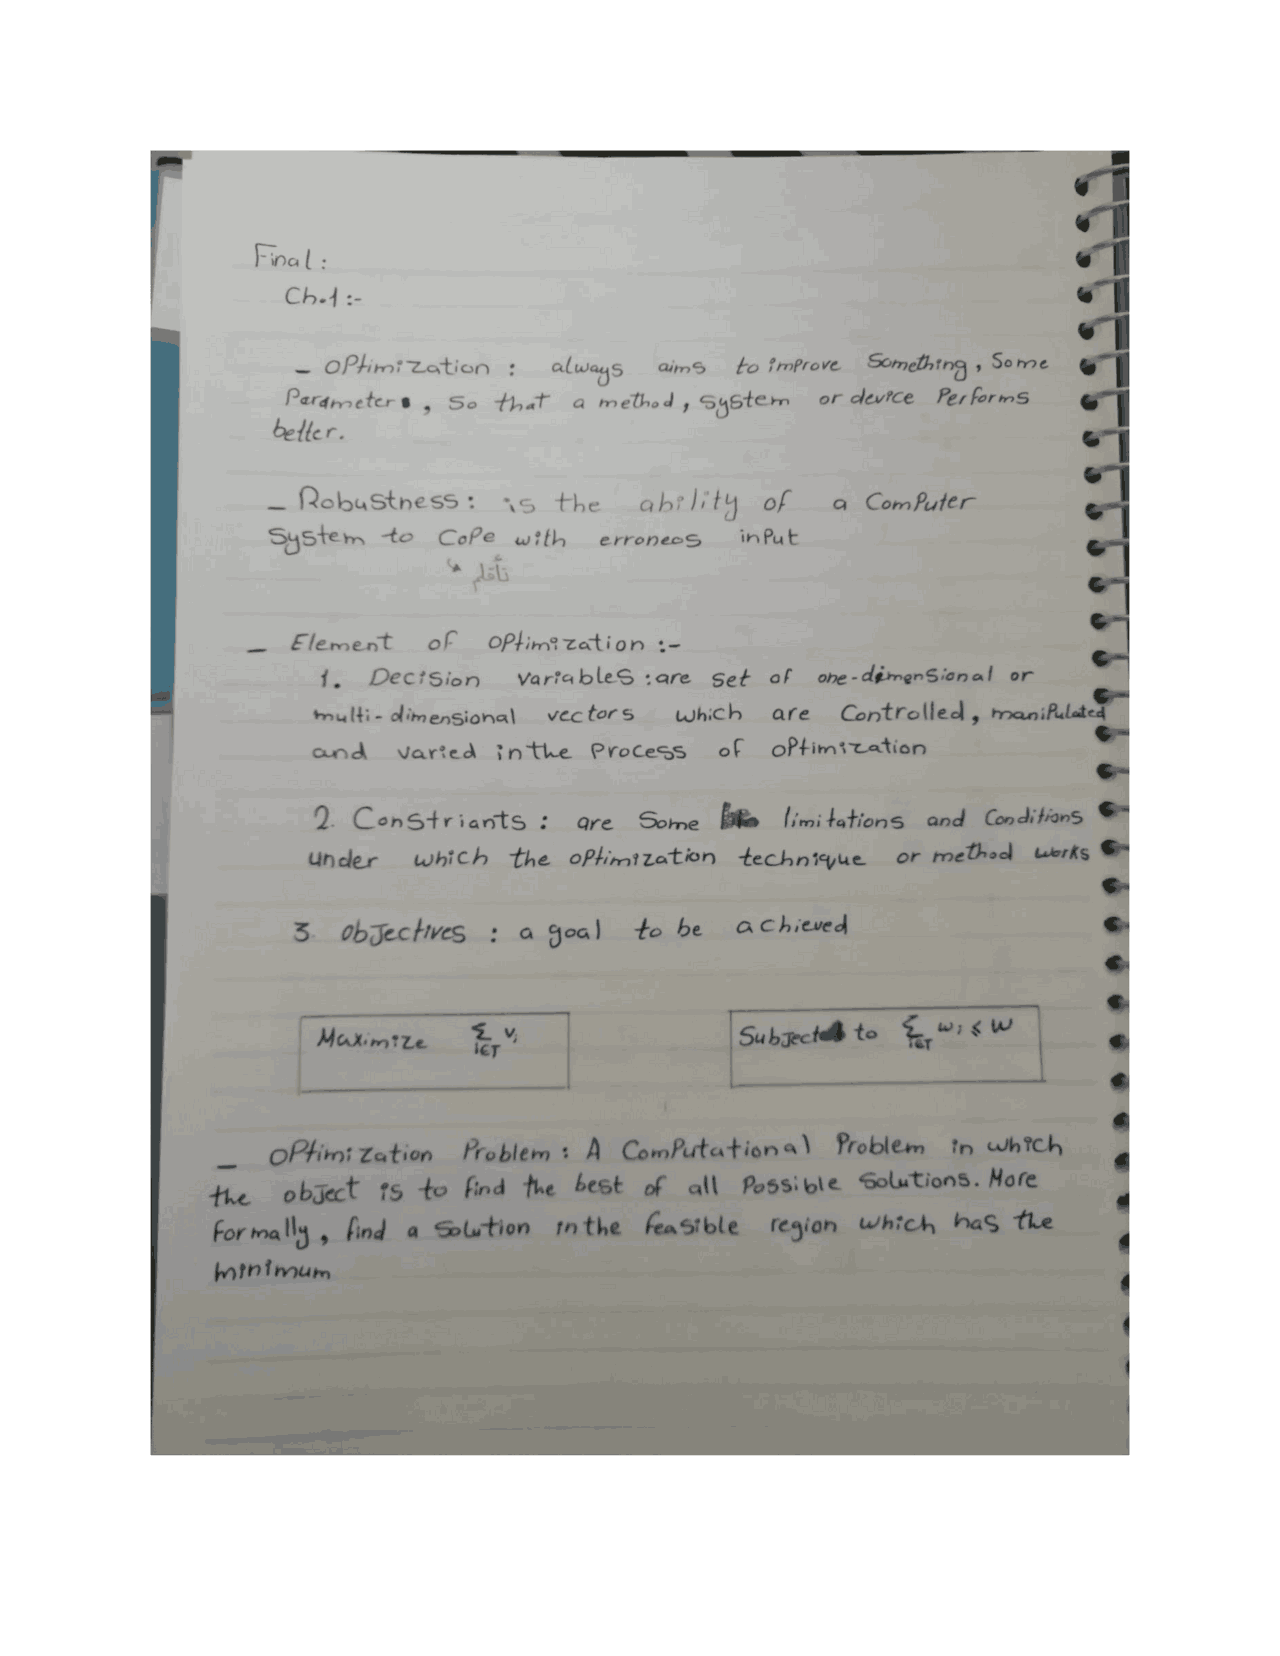 Final :
Ch.1 :-
- Optimization : always aims to improve Something, Some
Parameter , So that a method, system or device Performs
better.
- Robustness : is the ability of a Computer
System to CoPe with erroneos input
تأقلم
- Element of optimization :-
1. Decision variables : are set of one-dimensional or
multi-dimensional vectors which are Controlled, maniPulated
and varied in the Process of optimization
2. Constriants : are Some limitations and Conditions
under which the optimization technique or method works
3. objectives : a goal to be achieved
Maximize ∑ i∈T vᵢ
Subject to ∑ i∈T wᵢ ≤ W
- optimization Problem : A Computational Problem in which
the object is to find the best of all Possible Solutions. More
Formally, find a Solution in the feasible region which has the
minimum